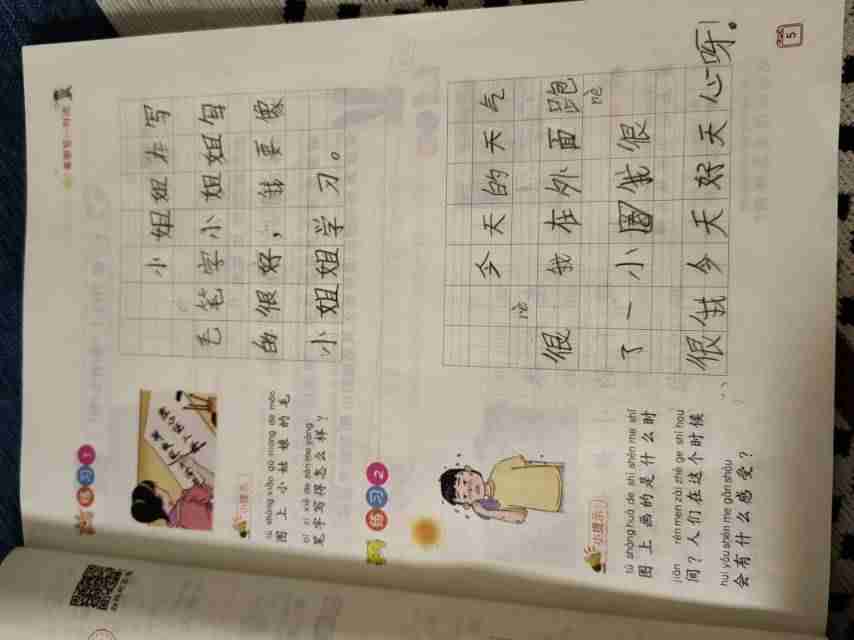 练习1
小提示
tú shàng xiǎo gū niang de máo
图上小姑娘的毛
bǐ zì xiě de zěn me yàng
笔字写得怎么样？
小姐姐在写
毛笔字小姐姐
的很好，我要像
小姐姐学习。
练习2
小提示
tú shàng huà de shì shén me shí
图上画的是什么时
jiān rén men zài zhè ge shí hou
间？人们在这个时候
huì yǒu shén me gǎn shòu
会有什么感受？
今天的天气
很 我在外面跑
了一小圈我很
很我今天好天心呀！
5